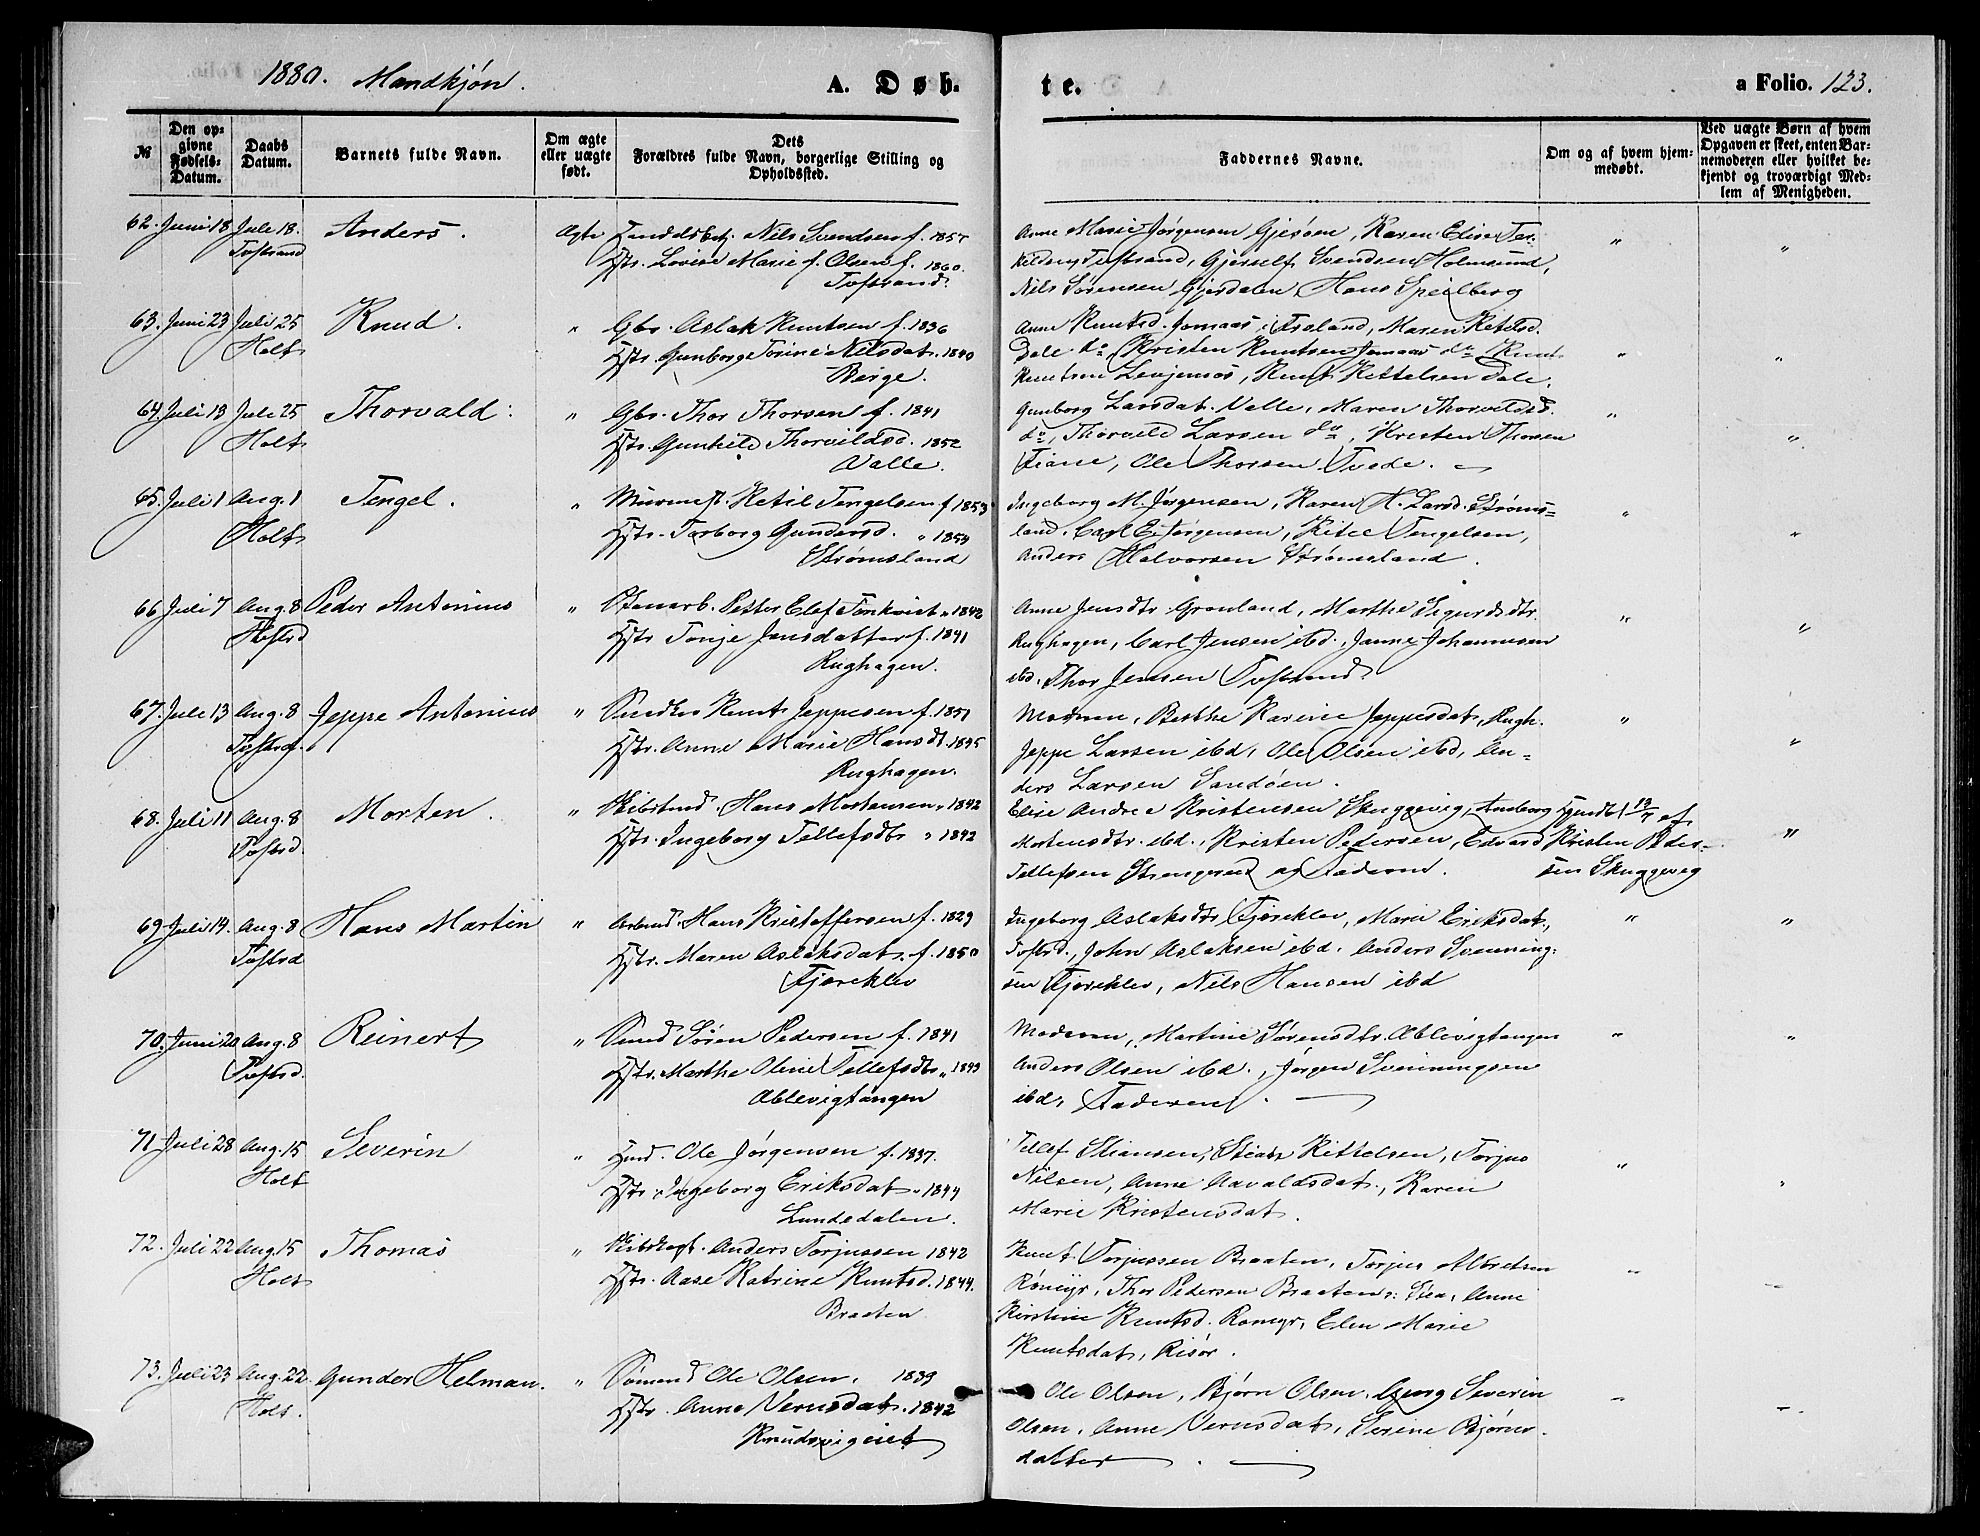 1880. Mandkjøn. A. Døb-
te. a Folio. 123.
№
Den op-
givne
Fødsels-
Datum.
Daabs
Datum.
Barnets fulde Navn.
Om ægte
eller uægte
født.
Dets
Forældres fulde Navn, borgerlige Stilling og
Opholdssted.
Faddernes Navne.
Om og af hvem hjem-
medøbt.
Ved uægte Børn af hvem
Opgaven er skeet, enten Bar-
nemoderen eller hvilket be-
kjendt og troværdigt Med-
lem af Menigheden.
62. Juni 18 Juli 18. Anders. Ægte Nils Svendsen f. 1857
Tvstrand Hstr. Lovise Marie f. Olsen f. 1860.
Tvstrand.
Anne Marie Jørgensen Gjesøen, Karen Elise Ter-
kildsen Tvstrand, Gjerself Svendsen Holmsund,
Nils Sørensen Gjesdalen, Hans Speilberg
63. Juni 23 Juli 25 Knud. " Gbr. Aslak Knutsen f. 1836
Holt Hstr. Gunborg Torine Nilsdat. 1840
Berge.
Anne Knutsd. Jomaas i Froland, Maren Ketilsd.
Dale do, Kristen Knutsen Jomaas do, Knut
Knutsen, Knut Kittelsen Dale.
64. Juli 13 Juli 25 Thorvald. " Gbr. Thor Thorsen f. 1841
Holt Hstr. Gunhild Thorvildsd. 1852
Valle.
Gunborg Larsdat. Valle, Maren Thorvildsd.
do, Thorvild Larsen do, Kristen Thorsen
Fiane, Ole Thorsen Tvede.
65. Juli 1 Aug. 1 Tengel. " Murmest. Ketil Tengelsen f 1853
Holt Hstr. Torborg Gundersd. " 1854
Strømsland
Ingeborg M. Jørgensen, Karen A. Larsd. Strøms-
land, Carl E. Jørgensen, Kitel Tengelsen,
Anders Halvorsen Strømsland.
66 Juli 7 Aug. 8 Peder Antonius " Stenarb. Petter Elef " 1842
Tvstrd Hstr Tonje Jensdatter f. 1841
Rughagen.
Anne Jensdtr Grønland, Marthe Sigurdsdtr.
Rughagen, Carl Jensen ibd., Janne Johannesen
ibd. Thor Jensen Tvstrand
67. Juli 13 Aug. 8 Jeppe Antonius " Knut Jeppesen f. 1851
Tvstrd. Hstr. Anne Marie Hansdt. 1845
Rughagen.
Modren, Berthe Karine Jeppesdat, Rugh.
Jeppe Larsen ibd, Ole Olsen ibd, An-
ders Larsen Sandøen.
68. Juli 11 Aug. 8 Morten. " Skibstmd. Hans Mortensen " 1842
Tvstrd. Hstr. Ingeborg Tellefsdtr " 1842
Elise Andrea Kristensen Skuggevig, Amborg
Mortensdtr. ibd., Kristen Pedersen, Edvard
Tellefsen Strengereid og Faderen.
Hjemdbt 13/7 af
Kristen Peder-
sen Skuggevig
69. Juli 14. Aug. 8 Hans Martin " Arbmd. Hans Kristoffersen f. 1829
Tvstrd Hstr. Maren Aslaksdat. f. 1850
Fjæreklev
Ingeborg Aslaksdtr Fjæreklev, Marie Eriksdat,
Tvstrd., John Aslaksen ibd. Anders Svenning-
sen Fjæreklev, Nils Hansen ibd
70. Juni 20 Aug. 8 Reinert " Smed Søren Pedersen f. 1841
Tvstrd. Hstr. Marthe Oline Tellefsdtr " 1843
Ablevigtangen
Moderen, Martine Sørensdtr. Ablevigtangen
Anders Olsen ibd., Jørgen Svenningsen
ibd, Faderen.
71. Juli 28 Aug. 15 Severin " Hmd. Ole Jørgensen f. 1837.
Holt Hstr. Ingeborg Eriksdat " 1844
Lundedalen.
Tellef Stiansen, Stian Kittelsen, Torjus
Nilsen, Anne Aavaldsdat., Karen
Marie Kristensdat.
72. Juli 22 Aug. 15 Thomas " Anders Torjussen 1842
Holt Hstr. Aase Katrine Knutsd. 1844.
Braaten
Knut Torjussen Braaten, Torjus Albretsen
Rømyr, Thor Pedersen Braaten, Anne
Kirstine Knutsd. Rømyr, Elen Marie
Knutsdat, Risør.
73. Juli 23 Aug. 22. Gunder Helman. " Sømand Ole Olsen. 1839
Holt. Hstr. Anne Vernsdat. 1842
Knudsvigeiet
Ole Olsen, Bjørn Olsen, Georg Severin
Olsen, Anne Vernsdat, Serine Bjørns-
datter.